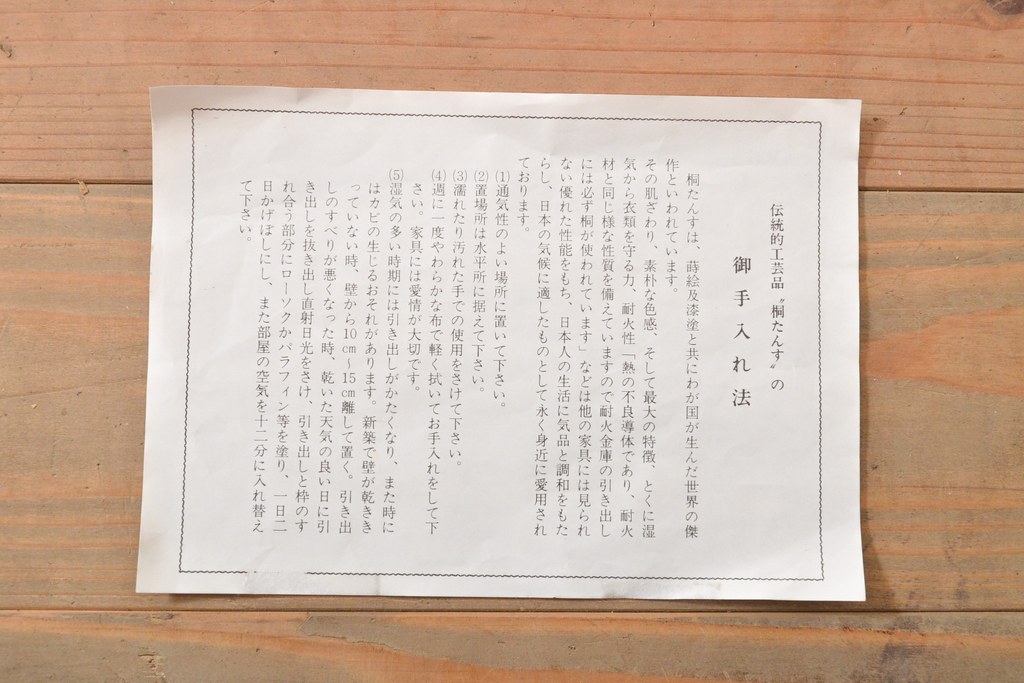 伝統的工芸品〝桐たんす〟の
御手入れ法
桐たんすは、蒔絵及漆塗と共にわが国が生んだ世界の傑
作といわれています。
その肌ざわり、素朴な色感、そして最大の特徴、とくに湿
気から衣類を守る力、耐火性「熱の不良導体であり、耐火
材と同じ様な性質を備えていますので耐火金庫の引き出し
には必ず桐が使われています」などは他の家具には見られ
ない優れた性能をもち、日本人の生活に気品と調和をもた
らし、日本の気候に適したものとして永く身近に愛用され
ております。
⑴通気性のよい場所に置いて下さい。
⑵置場所は水平所に据えて下さい。
⑶濡れたり汚れた手での使用をさけて下さい。
⑷週に一度やわらかな布で軽く拭いてお手入れをして下
さい。家具には愛情が大切です。
⑸湿気の多い時期には引き出しがかたくなり、また時に
はカビの生じるおそれがあります。新築で壁が乾きき
っていない時、壁から10cm〜15cm離して置く。引き出
しのすべりが悪くなった時、乾いた天気の良い日に引
き出しを抜き出し直射日光をさけ、引き出しと枠のす
れ合う部分にローソクかパラフィン等を塗り、一日二
日かげぼしにし、また部屋の空気を十二分に入れ替え
て下さい。